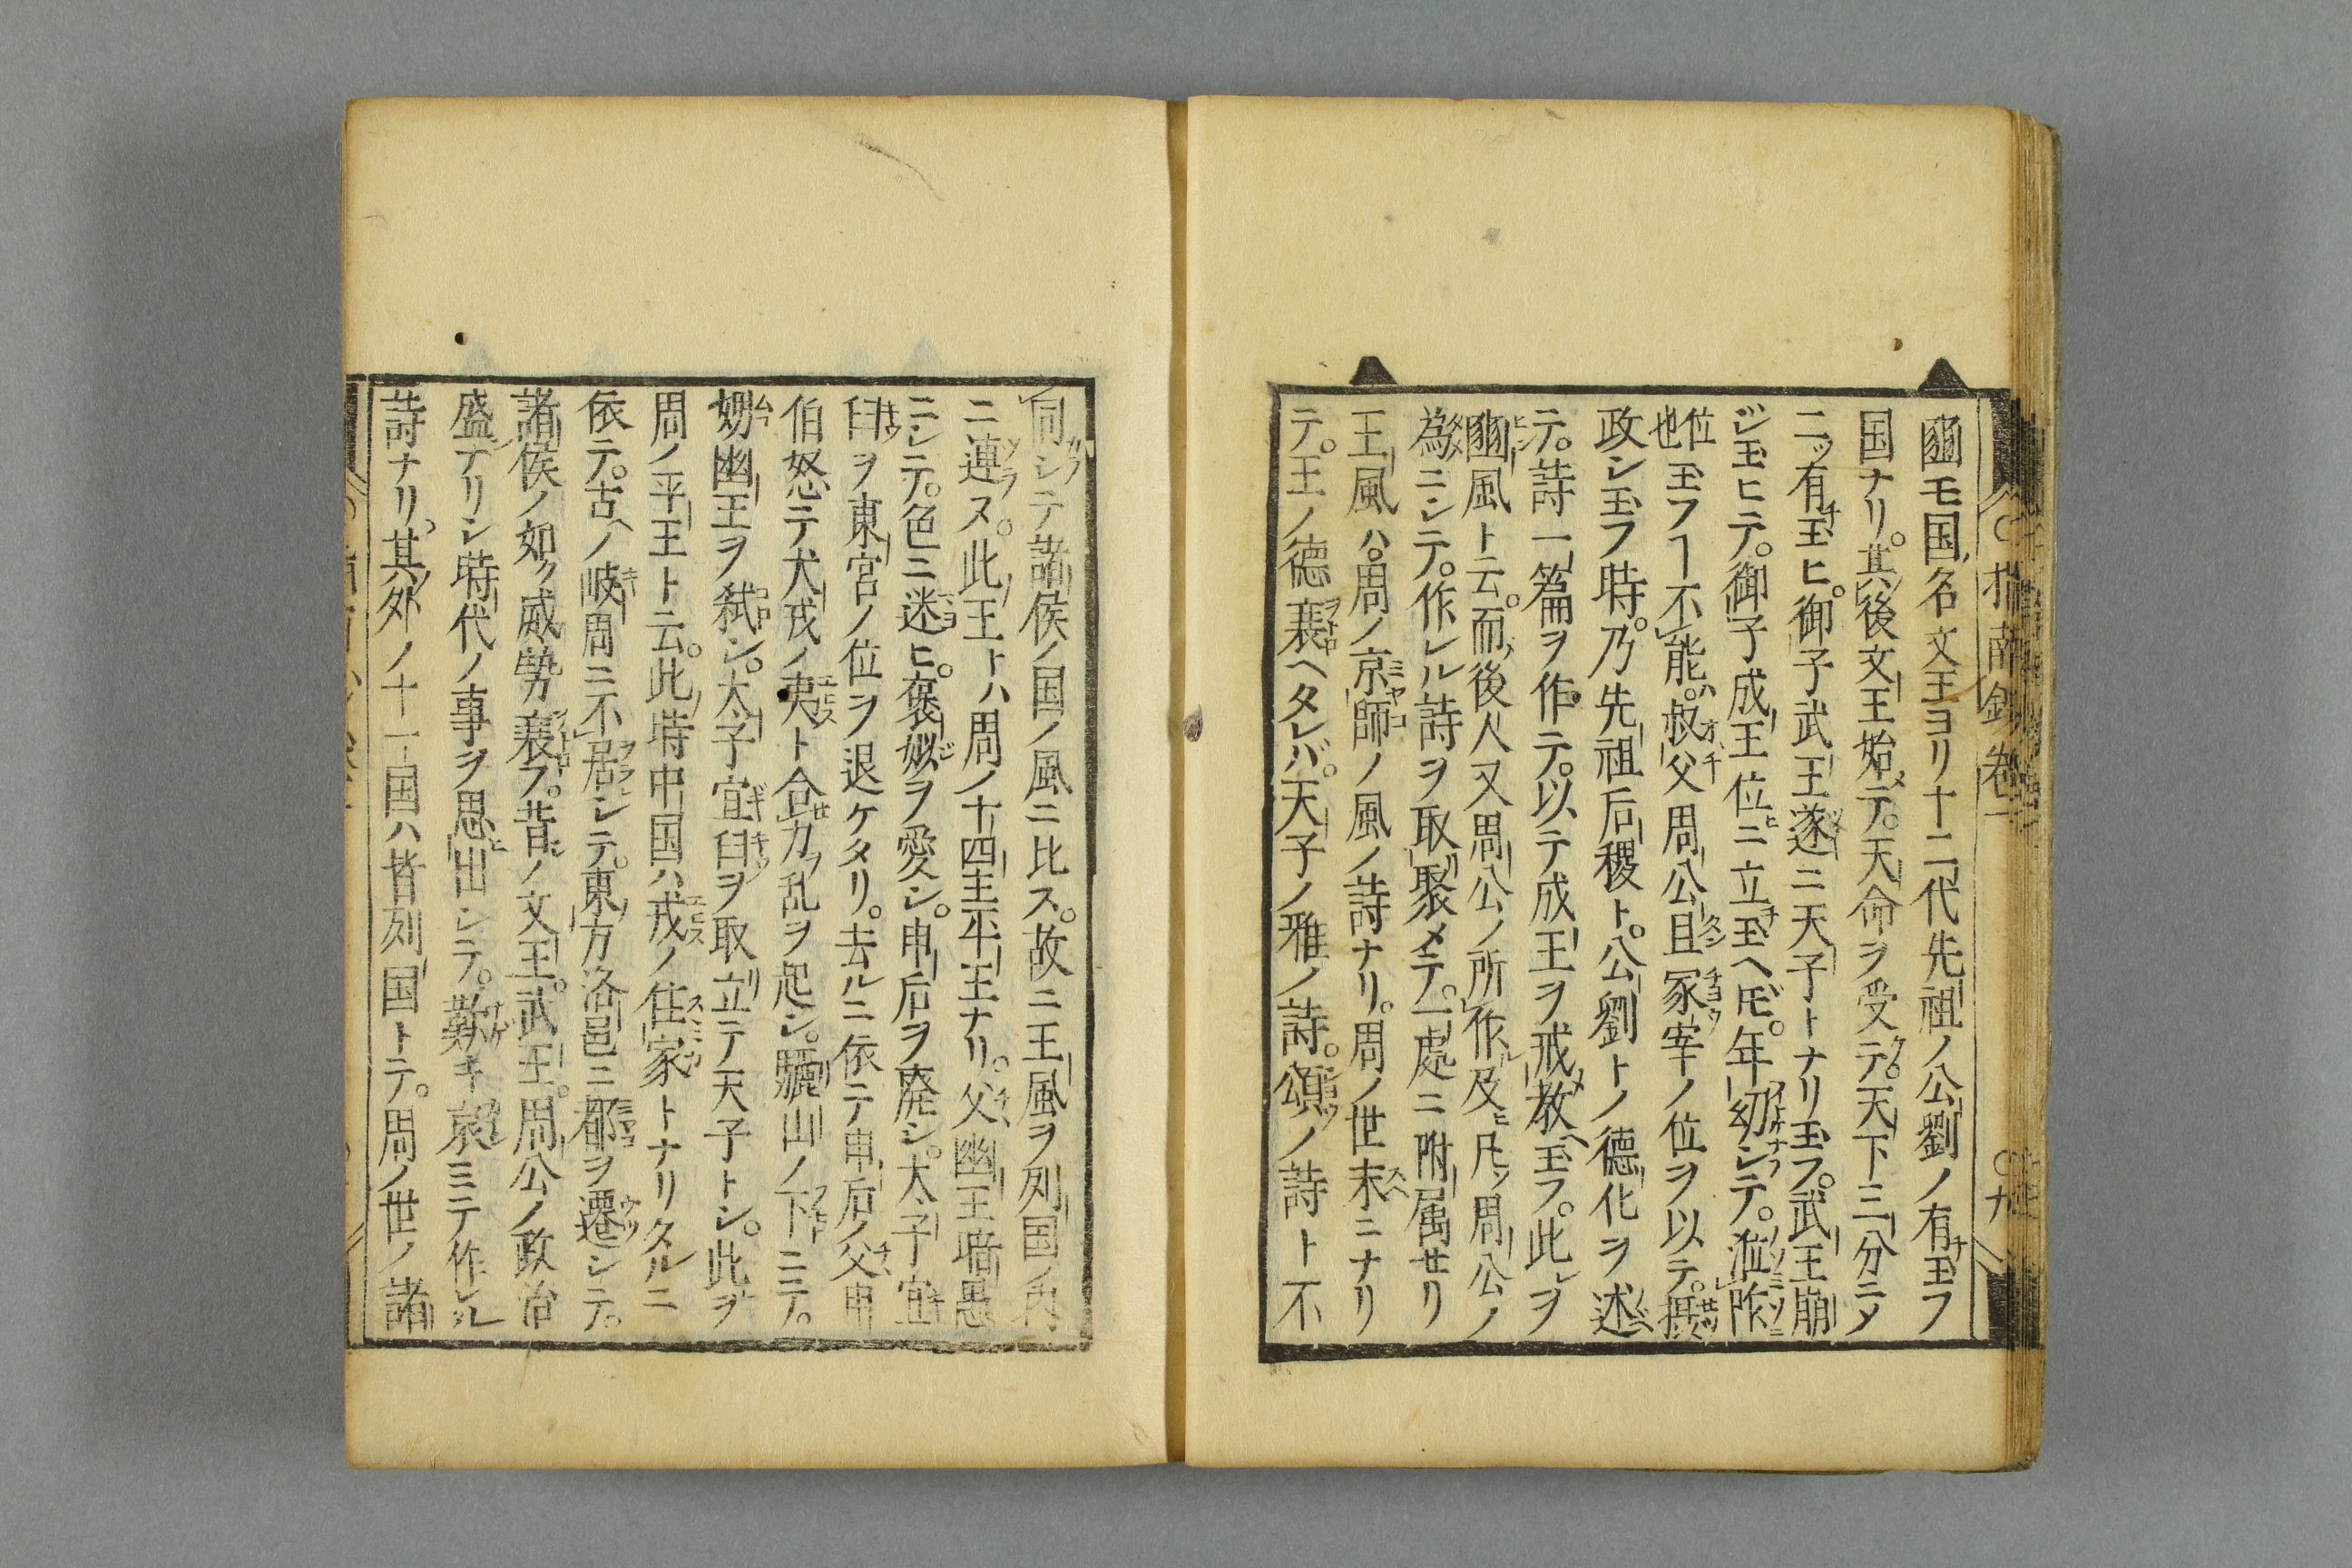 豳モ国ノ名文王ヨリ十二代先祖ノ公劉ノ有玉フ
国ナリ。其後文王始テ。天命ヲ受テ。天下三分ニメ
二ッ有玉ヒ。御子武王遂ニ天子トナリ玉フ。武王崩
ジ玉ヒテ。御子成王位ニ立玉ヘ𪜈。年幼シテ。涖阼
位也玉フヿ不能。叔父周公旦冢宰ノ位ヲ以テ。摂
政シ玉フ時。乃先祖后稷ト。公劉トノ徳化ヲ述
テ。詩一篇ヲ作テ。以テ成王ヲ戒教玉フ。此ヲ
豳風ト云。而後人又周公ノ所作及凡ッ周公ノ
為ニシテ。作レル詩ヲ取聚メテ。一處ニ附属セリ
王風ハ。周ノ京師ノ風ノ詩ナリ。周ノ世末ニナリ
テ。王ノ徳衰ヘタレバ。天子ノ雅ノ詩。頌ノ詩ト不
同シテ諸侯ノ国ノ風ニ比ス。故ニ王風ヲ列国ノ内
ニ連ヌ。此王トハ周ノ十四主平王ナリ。父幽王暗愚
ニシテ。色ニ迷ヒ。褒姒ヲ愛シ。申后ヲ廃シ。太子宜
臼ヲ東宮ノ位ヲ退ケタリ。去ルニ依テ申后ノ父申
伯怒テ犬戎ノ夷ト合力乱ヲ起シ。驪山ノ下ニテ。
幽王ヲ弑シ。太子宜臼ヲ取立テ天子トシ。此ヲ
周ノ平王ト云。此時中国ハ戎ノ住家トナリタルニ
依テ。古ヘノ岐周ニ不居シテ。東方洛邑ニ都ヲ遷シテ。
諸侯ノ如ク威勢衰フ。昔ノ文王。武王。周公ノ政治
盛ナリシ時代ノ事ヲ思出シテ。歎キ哀ミテ作レル
詩ナリ。其外ノ十一国ハ皆列国トテ。周ノ世ノ諸
指南鈔巻一
○九